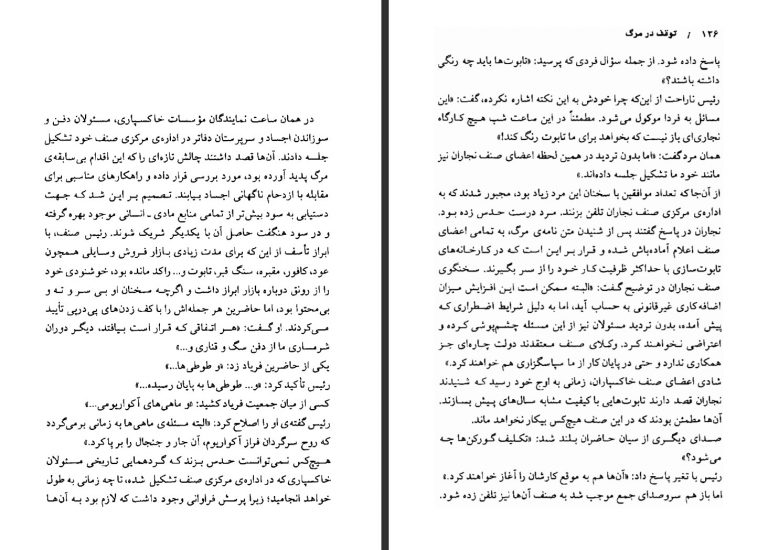 در همان ساعت نمایندگان مؤسسات خاکسپاری، مسئولان دفن و
سوزاندن اجساد و سرپرستان دفاتر در اداره‌ی مرکزی صنف خود تشکیل
جلسه دادند. آن‌ها قصد داشتند چالش تازه‌ای را که این اقدام بی‌سابقه‌ی
مرگ پدید آورده بود، مورد بررسی قرار داده و راهکارهای مناسبی برای
مقابله با ازدحام ناگهانی اجساد بیابند. تصمیم بر این شد که جهت
دستیابی به سود بیش‌تر از تمامی منابع مادی ـ انسانی موجود بهره گرفته
و در سود هنگفت حاصل آن با یکدیگر شریک شوند. رئیس صنف، با
ابراز تأسف از این که برای مدت زیادی بازار فروش وسایلی همچون
عود، کافور، مقبره، سنگ قبر، تابوت و... راکد مانده بود، خوشنودی خود
را از رونق دوباره بازار ابراز داشت و اگرچه سخنان او بی سر و ته و
بی‌محتوا بود، اما حاضرین هر جمله‌اش را با کف زدن‌های پی‌درپی تأیید
می‌کردند. او گفت: «هر اتفاقی که قرار است بیافتد، دیگر دوران
شرمساری ما از دفن سگ و قناری و...»
یکی از حاضرین فریاد زد: «و طوطی‌ها...»
رئیس تأکید کرد: «و... طوطی‌ها به پایان رسیده...»
کسی از میان جمعیت فریاد کشید: «و ماهی‌های آکواریومی...»
رئیس گفته‌ی او را اصلاح کرد: «البته مسئله‌ی ماهی‌ها به زمانی برمی‌گردد
که روح سرگردان فراز آکواریوم، آن جار و جنجال را برپا کرد.»
هیچ‌کس نمی‌توانست حدس بزند که گردهمایی تاریخی مسئولان
خاکسپاری که در اداره‌ی مرکزی صنف تشکیل شده، تا چه زمانی به طول
خواهد انجامید؛ زیرا پرسش فراوانی وجود داشت که لازم بود به آن‌ها
۱۲۶ / توقف در مرگ
پاسخ داده شود. از جمله سؤال فردی که پرسید: «تابوت‌ها باید چه رنگی
داشته باشند؟»
رئیس ناراحت از این‌که چرا خودش به این نکته اشاره نکرده، گفت: «این
مسائل به فردا موکول می‌شود. مطمئناً در این ساعت شب هیچ کارگاه
نجاری‌ای باز نیست که بخواهد برای ما تابوت رنگ کند!»
همان مرد گفت: «اما بدون تردید در همین لحظه اعضای صنف نجاران نیز
مانند خود ما تشکیل جلسه داده‌اند.»
از آن‌جا که تعداد موافقین با سخنان این مرد زیاد بود، مجبور شدند که به
اداره‌ی مرکزی صنف نجاران تلفن بزنند. مرد درست حدس زده بود.
نجاران در پاسخ گفتند پس از شنیدن متن نامه‌ی مرگ، به تمامی اعضای
صنف اعلام آماده‌باش شده و قرار بر این است که در کارخانه‌های
تابوت‌سازی با حداکثر ظرفیت کار خود را از سر بگیرند. سخنگوی
صنف نجاران در توضیح گفت: «البته ممکن است این افزایش میزان
اضافه‌کاری غیرقانونی به حساب آید، اما به دلیل شرایط اضطراری که
پیش آمده، بدون تردید مسئولان نیز از این مسئله چشم‌پوشی کرده و
اعتراضی نخواهند کرد. وکلای صنف معتقدند دولت چاره‌ای جز
همکاری ندارد و حتی در پایان کار از ما سپاسگزاری هم خواهند کرد.»
شادی اعضای صنف خاکسپاران، زمانی به اوج خود رسید که شنیدند
نجاران قصد دارند تابوت‌هایی با کیفیت مشابه سال‌های پیش بسازند.
آن‌ها مطمئن بودند که در این صنف هیچ‌کس بیکار نخواهد ماند.
صدای دیگری از میان حاضران بلند شد: «تکلیف گورکن‌ها چه
می‌شود؟»
رئیس با تغیر پاسخ داد: «آن‌ها هم به موقع کارشان را آغاز خواهند کرد.»
اما باز هم سروصدای جمع موجب شد به صنف آن‌ها نیز تلفن زده شود.